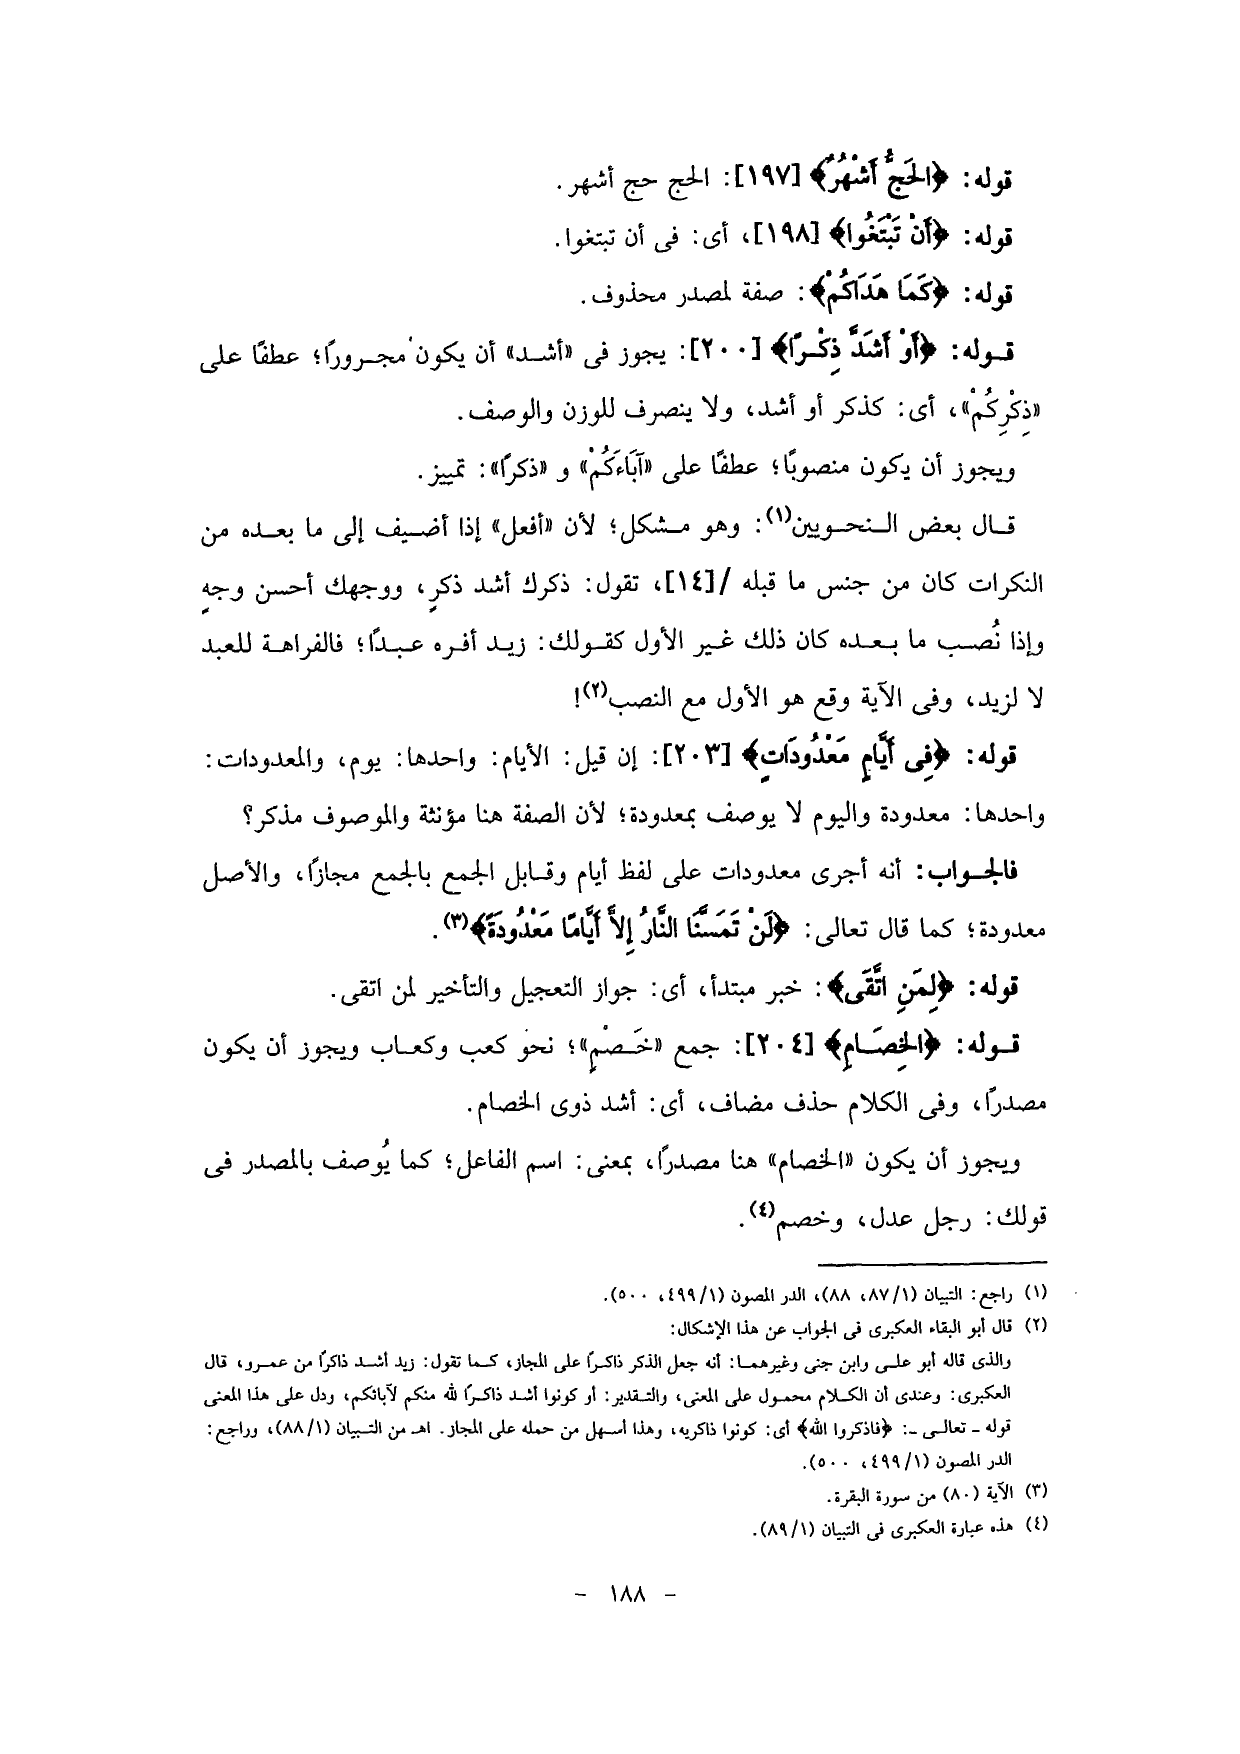 قوله: ﴿الحَجُّ أَشْهُرٌ﴾ [١٩٧]: الحج حج أشهر.
قوله: ﴿أَنْ تَبْتَغُوا﴾ [١٩٨]، أى: فى أن تبتغوا.
قوله: ﴿كَمَا هَدَاكُمْ﴾: صفة لمصدر محذوف.
قـوله: ﴿أَوْ أَشَدَّ ذِكْـرًا﴾ [٢٠٠]: يجوز فى «أشـد» أن يكون مجـرورًا؛ عطفًا على
«ذِكْرِكُمْ»، أى: كذكر أو أشد، ولا ينصرف للوزن والوصف.
ويجوز أن يكون منصوبًا؛ عطفًا على «آبَاءَكُمْ» و «ذكرًا»: تمييز.
قـال بعض النـحـويين(١): وهو مـشكل؛ لأن «أفعل» إذا أضـيف إلى ما بعـده من
النكرات كان من جنس ما قبله /[١٤]، تقول: ذكرك أشد ذكرٍ، ووجهك أحسن وجهٍ
وإذا نُصـب ما بـعـده كان ذلك غـير الأول كقـولك: زيـد أفـره عـبـدًا؛ فالفراهـة للعبد
لا لزيد، وفى الآية وقع هو الأول مع النصب(٢)!
قوله: ﴿فِى أَيَّامٍ مَعْدُودَاتٍ﴾ [٢٠٣]: إن قيل: الأيام: واحدها: يوم، والمعدودات:
واحدها: معدودة واليوم لا يوصف بمعدودة؛ لأن الصفة هنا مؤنثة والموصوف مذكر؟
فالجـواب: أنه أجرى معدودات على لفظ أيام وقـابل الجمع بالجمع مجازًا، والأصل
معدودة؛ كما قال تعالى: ﴿لَنْ تَمَسَّنَا النَّارُ إِلاَّ أَيَّامًا مَعْدُودَةً﴾(٣).
قوله: ﴿لِمَنِ اتَّقَى﴾: خبر مبتدأ، أى: جواز التعجيل والتأخير لمن اتقى.
قـوله: ﴿الخِصَـامِ﴾ [٢٠٤]: جمع «خَـصْمٍ»؛ نحو كعب وكعـاب ويجوز أن يكون
مصدرًا، وفى الكلام حذف مضاف، أى: أشد ذوى الخصام.
ويجوز أن يكون «الخصام» هنا مصدرًا، بمعنى: اسم الفاعل؛ كما يُوصف بالمصدر فى
قولك: رجل عدل، وخصم(٤).
(١) راجع: التبيان (٨٧/١، ٨٨)، الدر المصون (٤٩٩/١، ٥٠٠).
(٢) قال أبو البقاء العكبرى فى الجواب عن هذا الإشكال:
والذى قاله أبو علـى وابن جنى وغيرهمـا: أنه جعل الذكر ذاكـرًا على المجاز، كـما تقول: زيد أشـد ذاكرًا من عمـرو، قال
العكبرى: وعندى أن الكـلام محمـول على المعنى، والتـقدير: أو كونوا أشد ذاكـرًا لله منكم لآبائكم، ودل على هذا المعنى
قوله ـ تعالـى ـ: ﴿فاذكروا الله﴾ أى: كونوا ذاكريه، وهذا أسـهل من حمله على المجاز. اهـ من التـبيان (٨٨/١)، وراجع:
الدر المصون (٤٩٩/١، ٥٠٠).
(٣) الآية (٨٠) من سورة البقرة.
(٤) هذه عبارة العكبرى فى التبيان (٨٩/١).
- ١٨٨ -